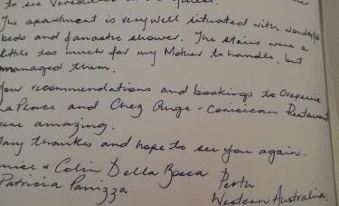 to see Versailles
The apartment is very well situated with wonderful
beds and fanastic shower. The stairs were a
little too much for my Mother to handle, but
managed them.
Your recommendations and bookings to Creperie
La Place and Chez Ange - Corsican Restaurant
were amazing.
Many thankes and hope to see you again.
& Colin Della Bosca Perth
Patricia Panizza Western Australia.